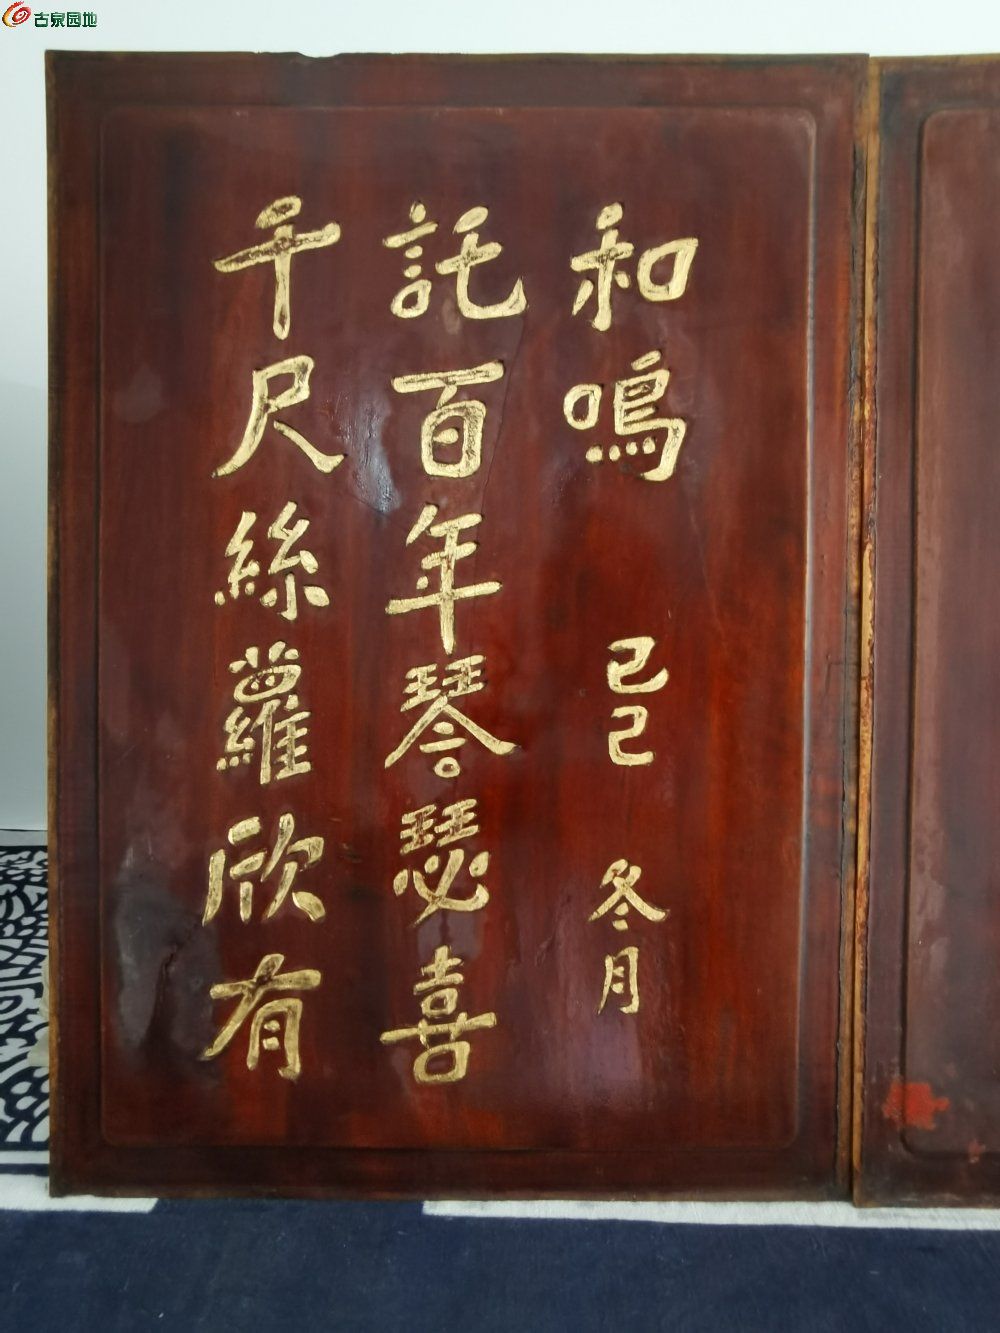 古泉园地
千尺絲蘿欣有
託百年琴瑟喜
和鳴 己巳 冬月